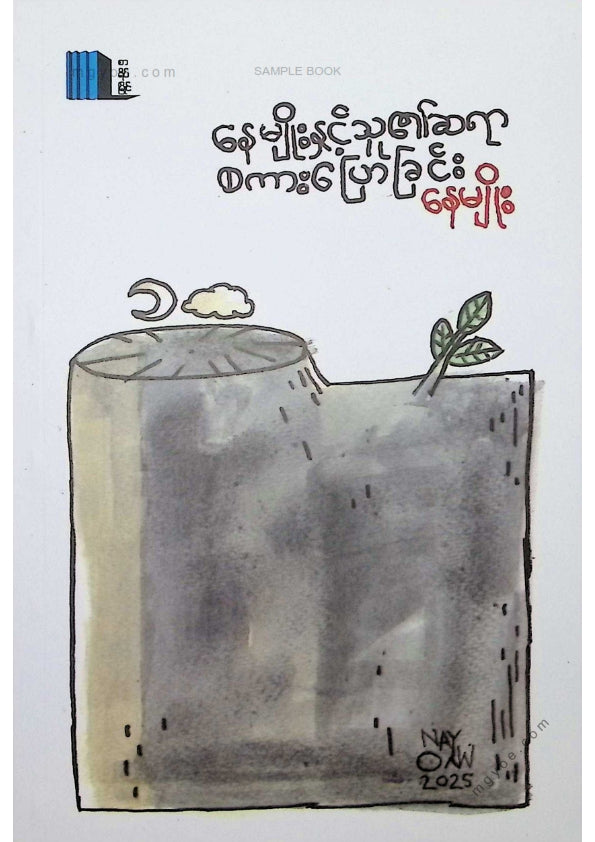 mgyoe.com
SAMPLE BOOK
နေမျိုးနှင့်သူ၏ဆရာ
စကားပြောခြင်း
နေမျိုး
NAY
2025
mgyoe.com